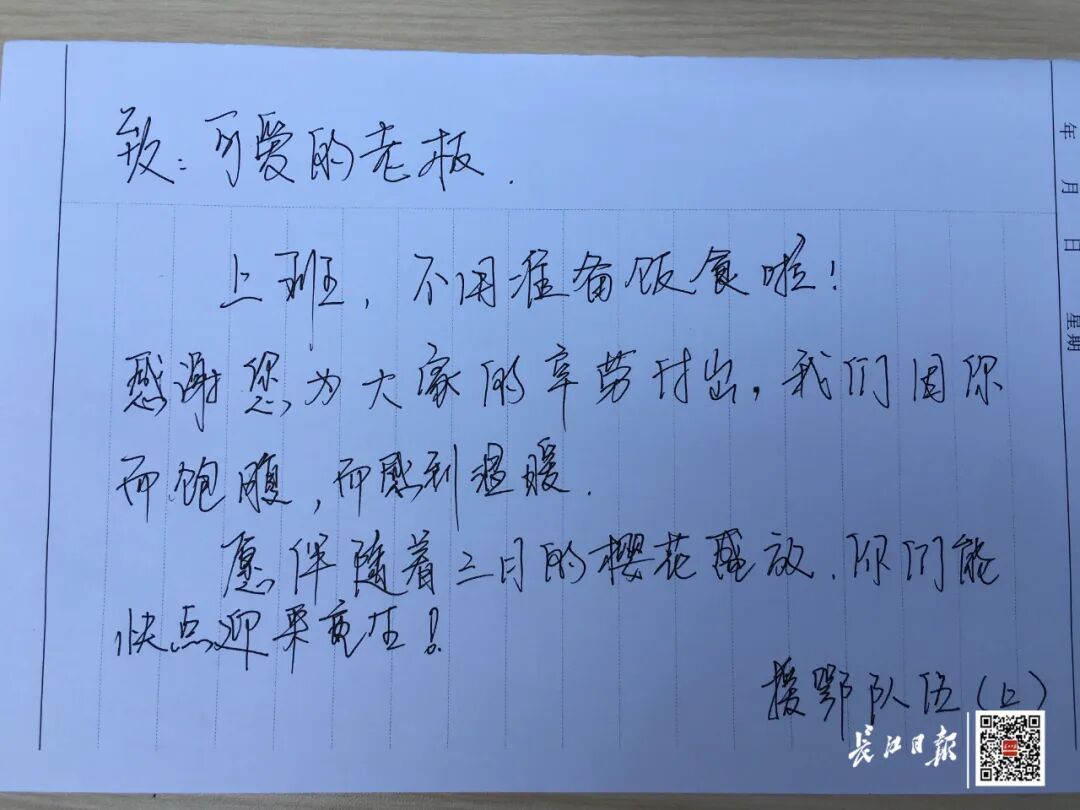 致：可爱的老板.
上班，不用准备饭食啦！
感谢您为大家的辛劳付出，我们因你
而饱腹，而感到温暖.
愿伴随着三月的樱花盛放.你们能
快点迎来重生！
援鄂队伍
年 月 日 星期
长江日报